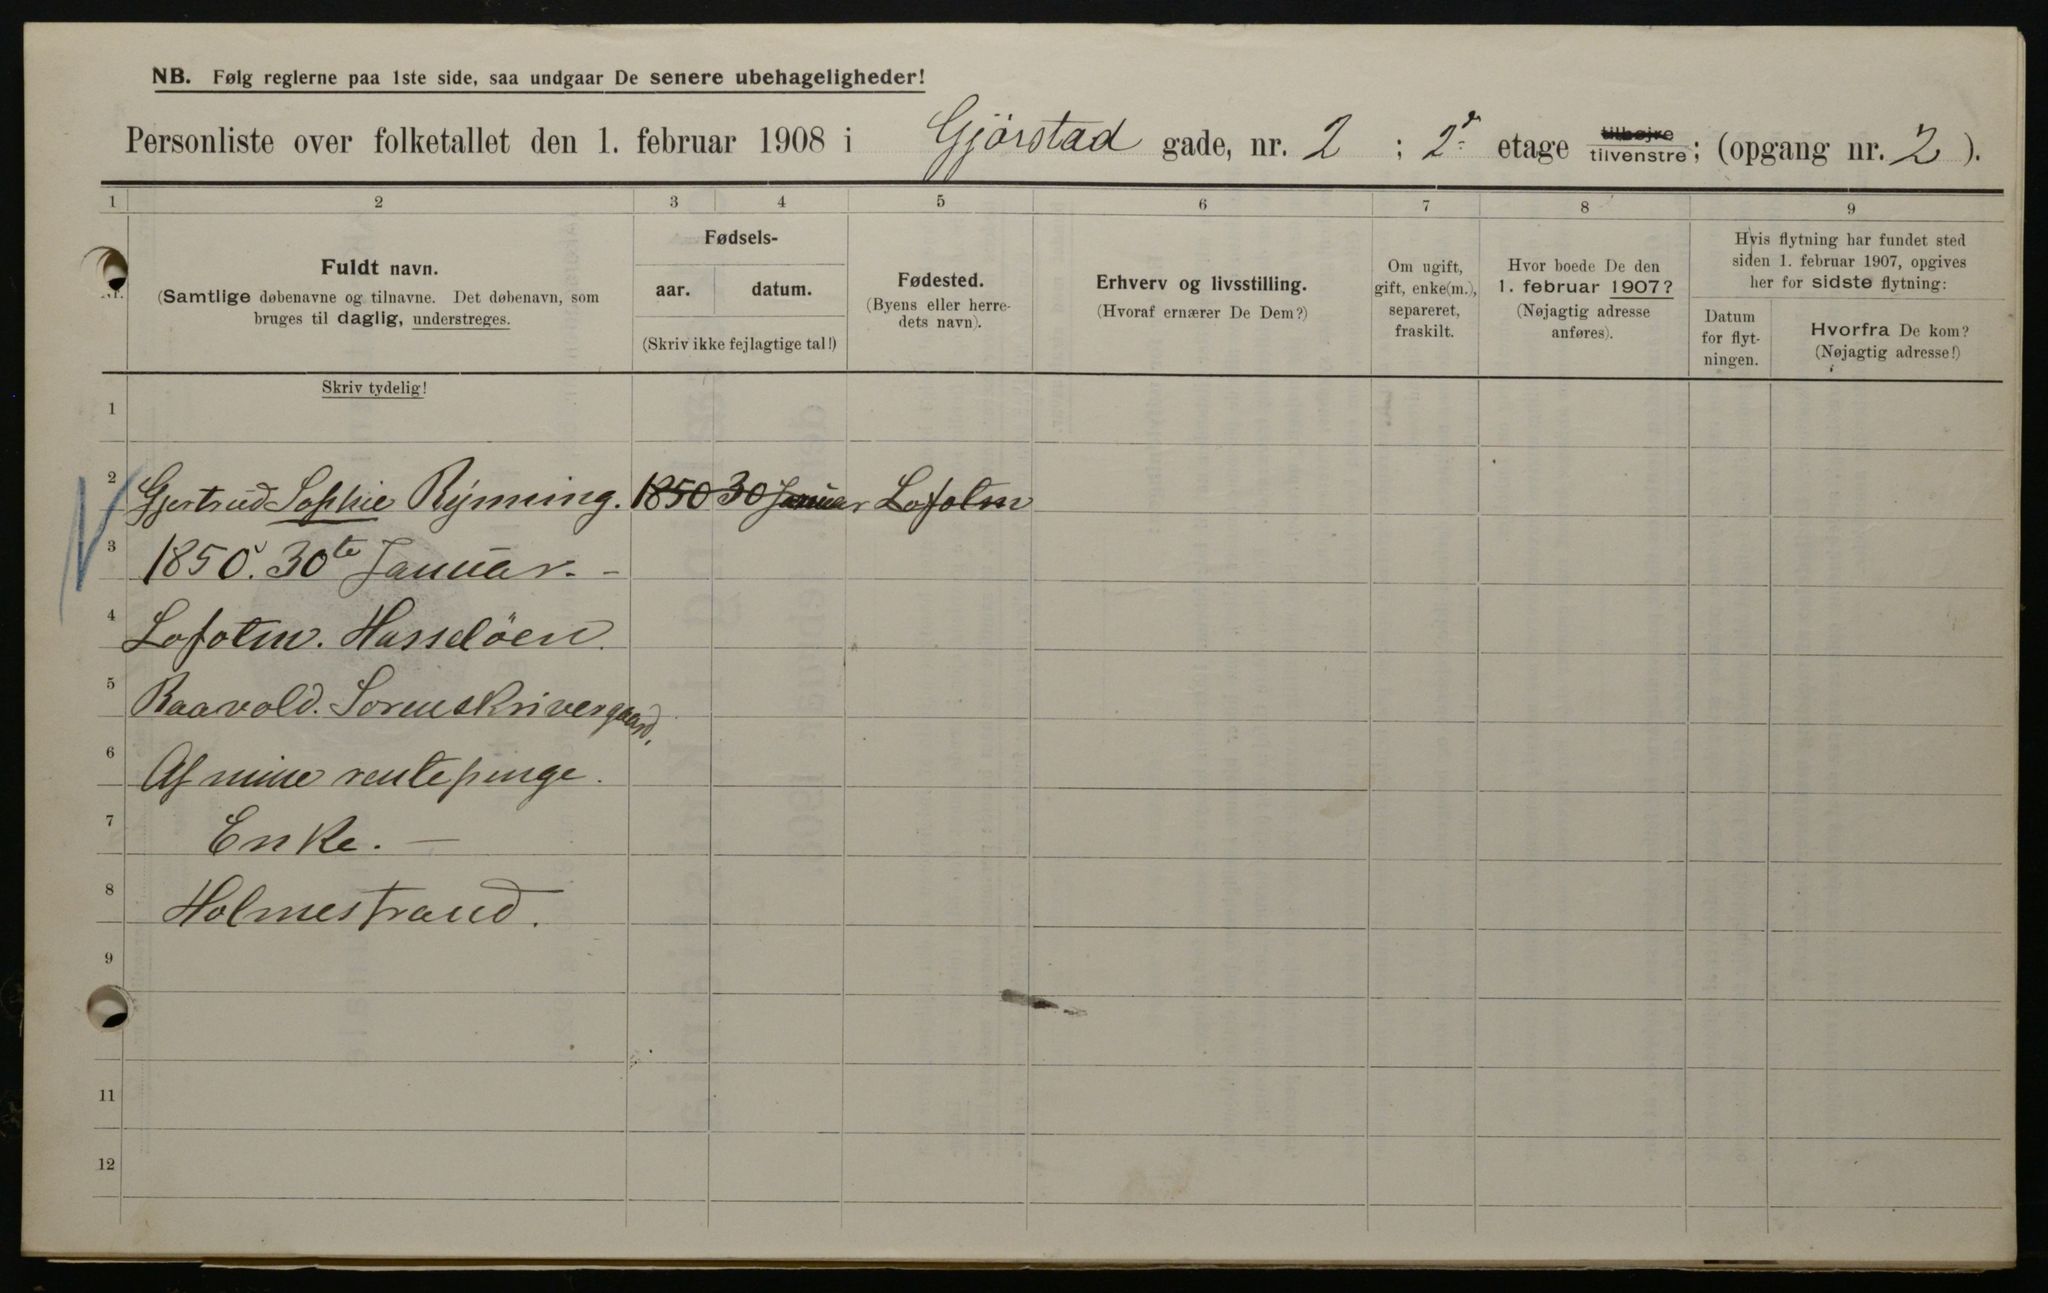 NB. Følg reglerne paa 1ste side, saa undgaar De senere ubehageligheder!
Personliste over folketallet den 1. februar 1908 i Gjörstad gade, nr. 2 ; 2den etage tilhøjre tilvenstre; (opgang nr. 2 ).
1 2 3 4 5 6 7 8 9
Nr.
Fuldt navn.
(Samtlige døbenavne og tilnavne. Det døbenavn, som
bruges til daglig, understreges.
Skriv tydelig!
Fødsels-
aar. datum.
(Skriv ikke fejlagtige tal!)
Fødested.
(Byens eller herre-
dets navn).
Erhverv og livsstilling.
(Hvoraf ernærer De Dem?)
Om ugift,
gift, enke(m.),
separeret,
fraskilt.
Hvor boede De den
1. februar 1907?
(Nøjagtig adresse
anføres).
Hvis flytning har fundet sted
siden 1. februar 1907, opgives
her for sidste flytning:
Datum
for flyt-
ningen.
Hvorfra De kom?
(Nøjagtig adresse!)
1
2 Gjertrud Sophie Rÿnning. 1850 30 Januar Lofoten
3 1850. 30te Januar. -
4 Lofoten. Hasselöen.
5 Raavold. Sorenskrivergaard.
6 Af mine rentepenge.
7 Enke. —
8 Holmestrand.
9
11
12